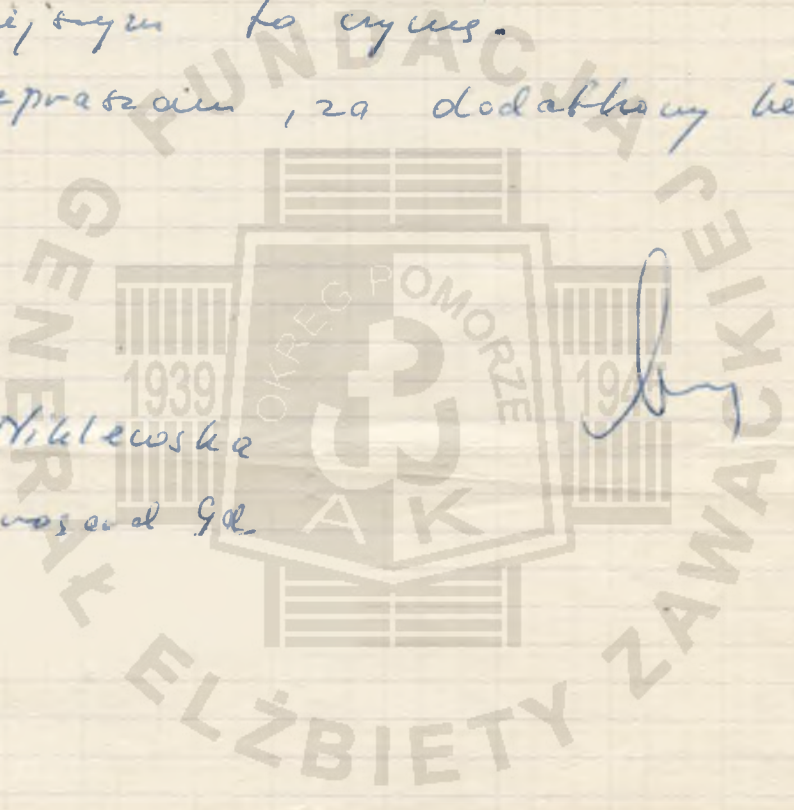 iejszym to czynię.
zepraszam, za dodatkowy
Niklewska
Gd.
FUNDACJA GENERAŁ ELŻBIETY ZAWACKIEJ
OKRĘG POMORZE
1939
AK